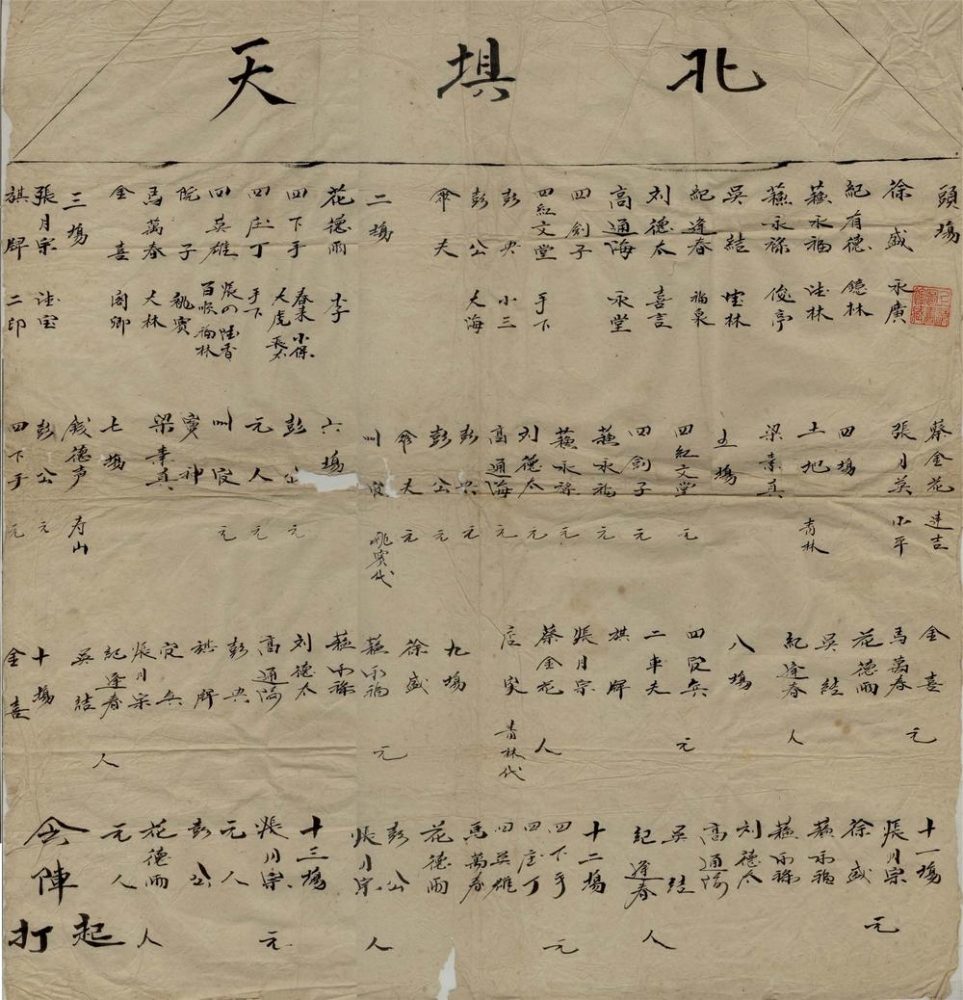 北埧天
頭場
徐盛 永廣
紀有德 德林
蘇永福 法林
蘇永祿 俊亭
吳結 桂林
紀逢春 福泉
刘德太 喜言
高通海 永堂
四刽子
四紅文堂 手下
彭兴 小三
彭公 大海
伞夫
二場
花德雨 李子
四下手 春来 小保
四庄丁 手下
四英雄 福林
院子 姚賓
馬萬春 大林
金喜 阁卿
三場
張月宗 法宝
旗牌 二印
蔡金花 连吉
張月英 小平
四場
土地 青林
梁素真
五場
四紅文堂 元
四刽子 元
蘇永福 元
蘇永祿 元
刘德太 元
高通海 元
彭兴 元
彭公 元
伞夫 元
姚賓代
六場
彭公 元
元人 元
元
梁素真
七場
錢德声 寿山
彭公 元
四下手 元
金喜 元
馬萬春
花德雨
吳結
紀逢春 人
八場
四兵 元
二車夫
旗牌
張月宗
蔡金花 人
店家 青林代
九場
徐盛 元
蘇永福
蘇永祿
刘德太
高通海
彭兴
旗牌
張月宗
紀逢春 人
吳結
十場
金喜
十一場
張月宗
徐盛 元
蘇永福
蘇永祿
刘德太
高通海
吳結
紀逢春 人
十二場
四下手 元
四庄丁
四英雄
馬萬春
花德雨
彭公
張月宗 人
十三場
張月宗 元
元人
彭公
花德雨 人
元人
会陣
起打